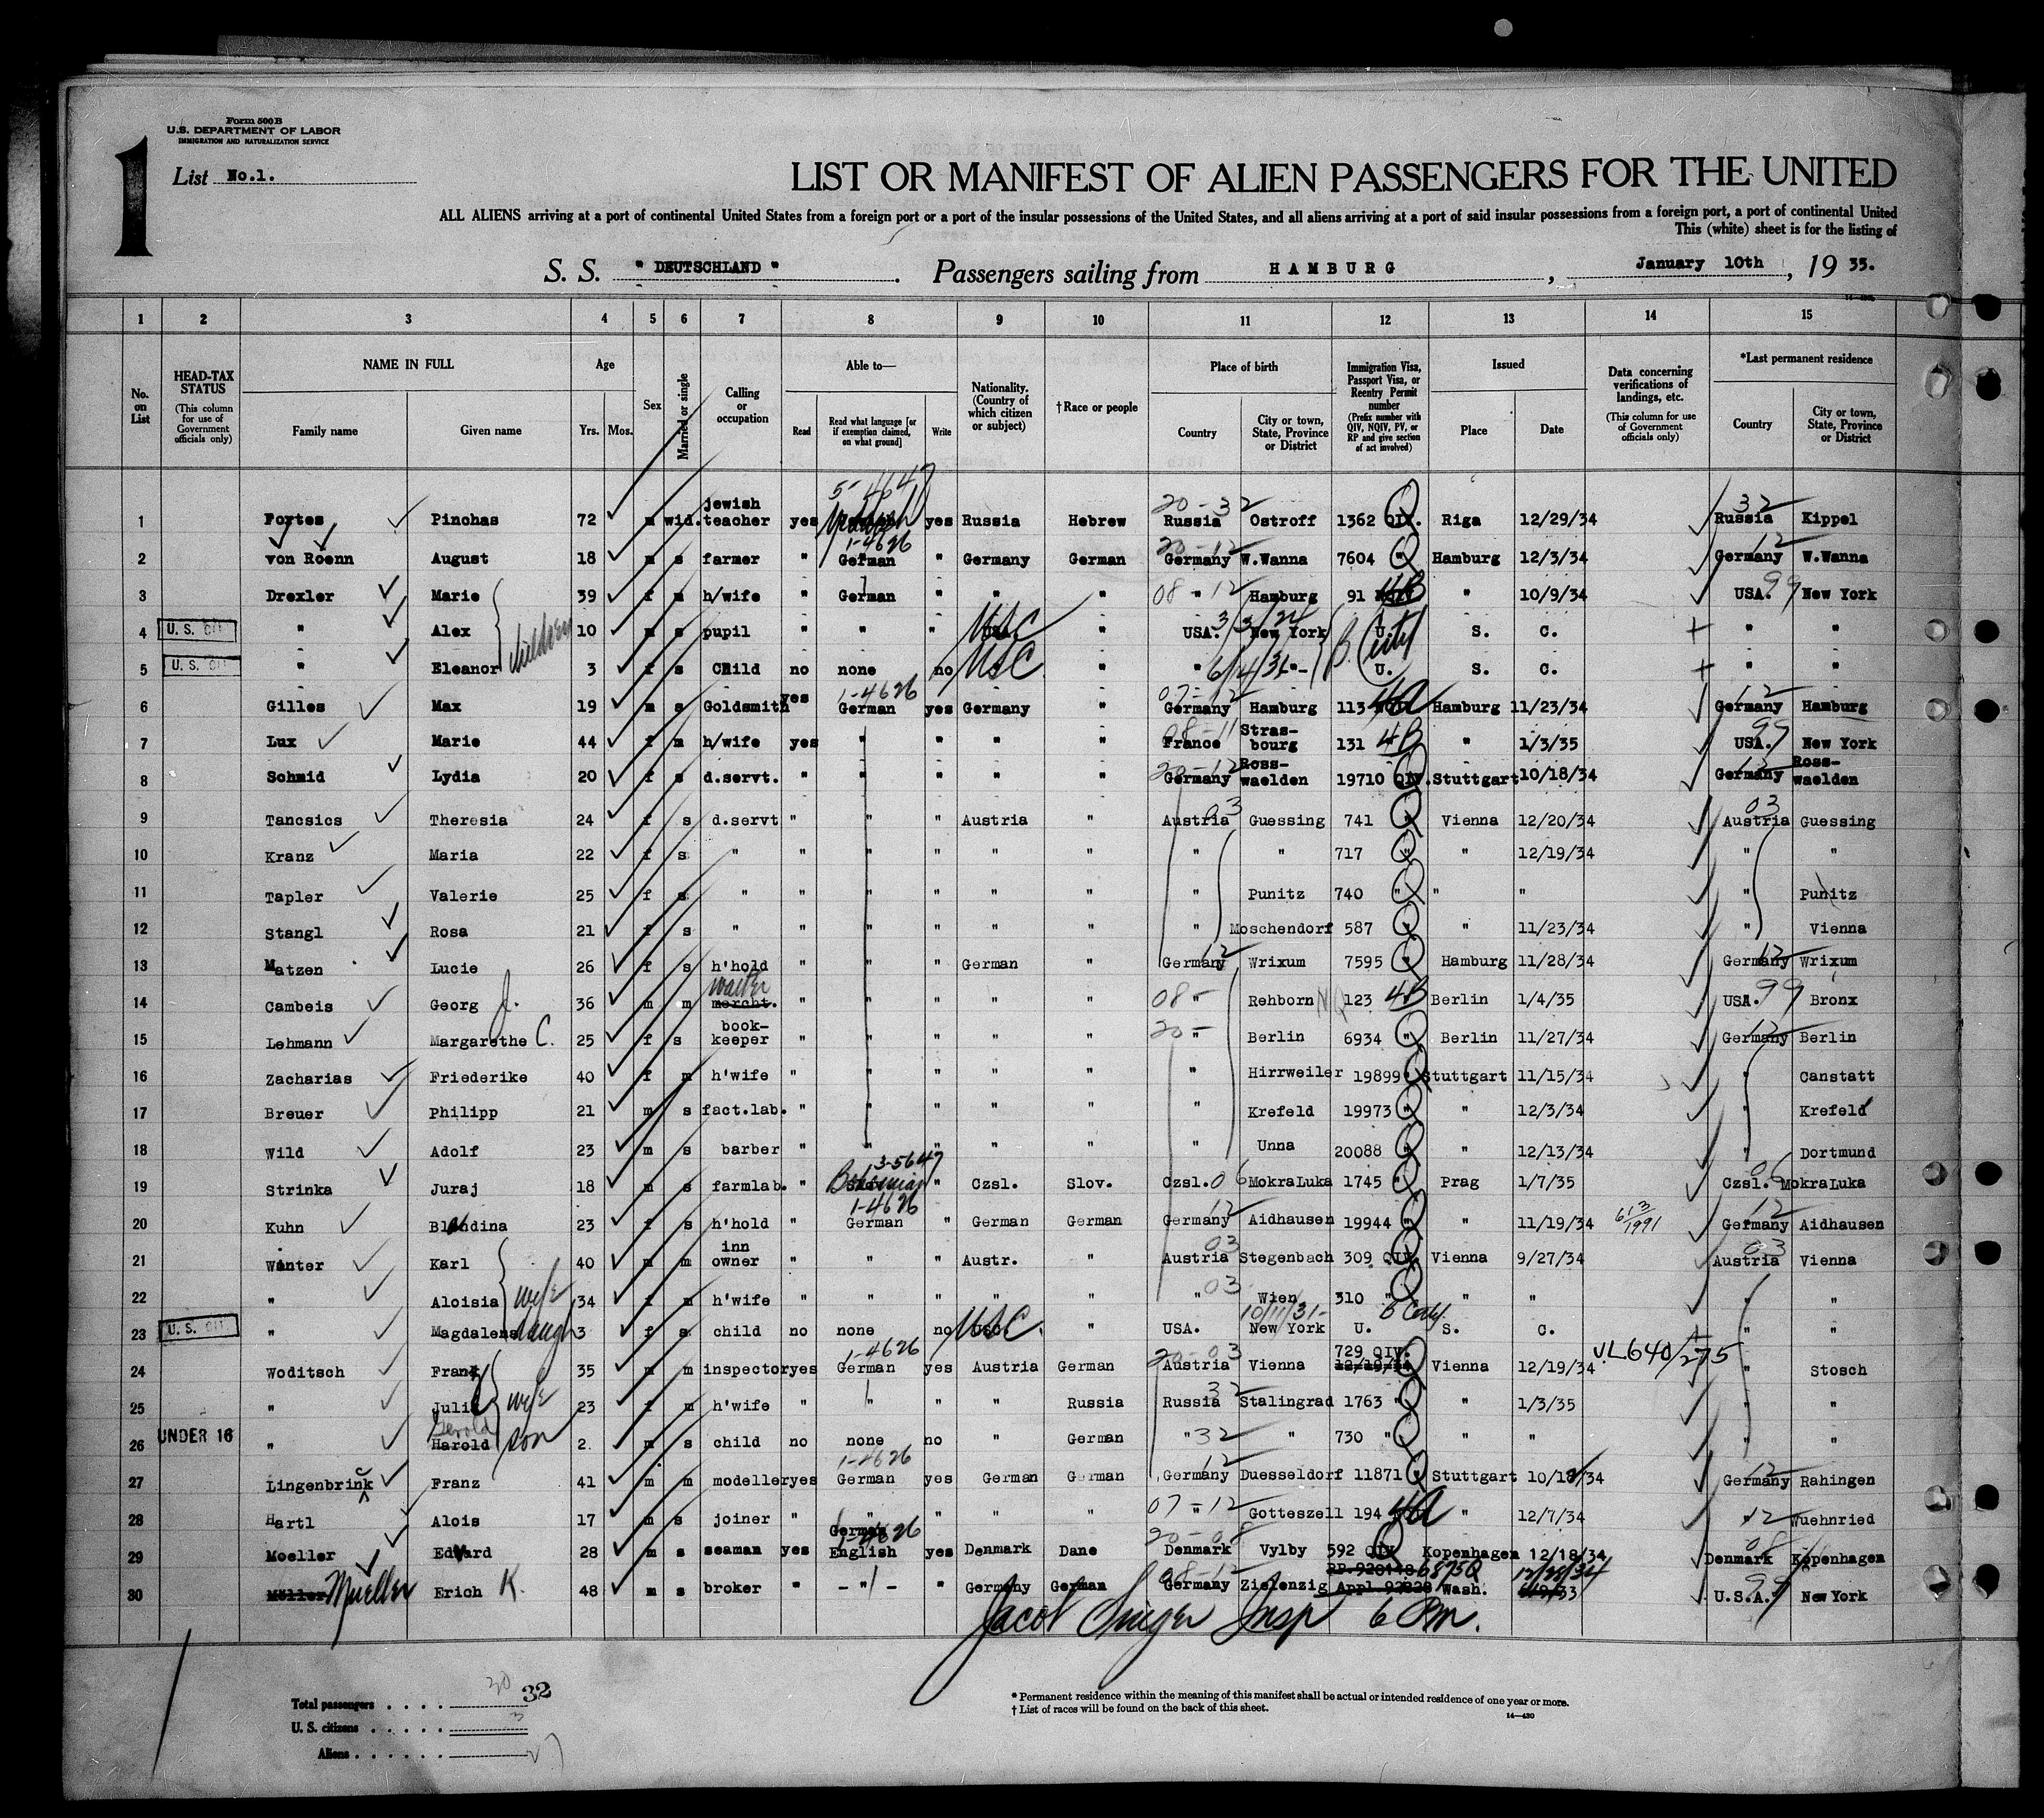 Form 500 B
U.S. DEPARTMENT OF LABOR
IMMIGRATION AND NATURALIZATION SERVICE
1
List No.1.
LIST OR MANIFEST OF ALIEN PASSENGERS FOR THE UNITED
ALL ALIENS arriving at a port of continental United States from a foreign port or a port of the insular possessions of the United States, and all aliens arriving at a port of said insular possessions from a foreign port, a port of continental United
This (white) sheet is for the listing of
S. S. " DEUTSCHLAND " . Passengers sailing from HAMBURG , January 10th , 19 35.
1 2 3 4 5 6 7 8 9 10 11 12 13 14 15
No. on List
HEAD-TAX STATUS (This column for use of Government officials only)
NAME IN FULL Family name Given name
Age Yrs. Mos.
Sex
Married or single
Calling or occupation
Able to— Read Read what language [or if exemption claimed, on what ground] Write
Nationality. (Country of which citizen or subject)
†Race or people
Place of birth Country City or town, State, Province or District
Immigration Visa, Passport Visa, or Reentry Permit number (Prefix number with QIV, NQIV, PV, or RP and give section of act involved)
Issued Place Date
Data concerning verifications of landings, etc. (This column for use of Government officials only)
*Last permanent residence Country City or town, State, Province or District
5-4647 20-32 32
1 Fortes Pinchas 72 m wid. jewish teacher yes yes Russia Hebrew Russia Ostroff 1362 QIV. Riga 12/29/34 Russia Kippel
1-4626 20-12 12
2 von Roenn August 18 m s farmer " German " Germany German Germany W.Wanna 7604 " Hamburg 12/3/34 Germany W.Wanna
3 Drexler Marie 39 f m h/wife " German " " " 08-12 " Hamburg 91 4B " 10/9/34 USA. 99 New York
4 U. S. CIT " Alex children 10 m s pupil " " " USC " USA. 3/3/24 New York U. B. Certf S. C. " "
5 U. S. CIT " Eleanor 3 f s Child no none no USC " " 6/4/31- U. S. C. " "
1-4626 07-12 12
6 Gilles Max 19 m s Goldsmith yes German yes Germany " Germany Hamburg 113 4a Hamburg 11/23/34 Germany Hamburg
08-11 99
7 Lux Marie 44 f m h/wife yes " " " " France Stras-bourg 131 4B " 1/3/35 USA. New York
20-12 12
8 Schmid Lydia 20 f s d.servt. " " " " " Germany Ross-waelden 19710 QIV. Stuttgart 10/18/34 Germany Ross-waelden
03 03
9 Tancsics Theresia 24 f s d.servt " " " Austria " Austria Guessing 741 " Vienna 12/20/34 Austria Guessing
10 Kranz Maria 22 f s " " " " " " " " 717 " " 12/19/34 " "
11 Tapler Valerie 25 f s " " " " " " " Punitz 740 " " " " Punitz
12 Stangl Rosa 21 f s " " " " " " " Moschendorf 587 " " 11/23/34 " Vienna
12 12
13 Matzen Lucie 26 f s h'hold " " " German " Germany Wrixum 7595 " Hamburg 11/28/34 Germany Wrixum
14 Cambeis Georg J. 36 m m mercht. waiter " " " " " 08- " Rehborn NQ 123 4B Berlin 1/4/35 USA. 99 Bronx
15 Lehmann Margarethe C. 25 f s book-keeper " " " " " 20- " Berlin 6934 " Berlin 11/27/34 Germany 12 Berlin
16 Zacharias Friederike 40 f m h'wife " " " " " " Hirrweiler 19899 " Stuttgart 11/15/34 " Canstatt
17 Breuer Philipp 21 m s fact.lab. " " " " " " Krefeld 19973 " " 12/3/34 " Krefeld
18 Wild Adolf 23 m s barber " " " " " " Unna 20088 " " 12/13/34 " Dortmund
3-5647 06
19 Strinka Juraj 18 m s farmlab. " Bohemian " Czsl. Slov. Czsl. 06 MokraLuka 1745 " Prag 1/7/35 Czsl. MokraLuka
1-4626 12 613/1991 12
20 Kuhn Blandina 23 f s h'hold " German " German German Germany Aidhausen 19944 " " 11/19/34 Germany Aidhausen
03 03
21 Winter Karl 40 m m inn owner " " " Austr. " Austria Stegenbach 309 QIV. Vienna 9/27/34 Austria Vienna
22 " Aloisia wife 34 f m h'wife " " " " " " 03 Wien 310 " " " " "
10/11/31- B Certf.
23 U. S. CIT " Magdalena daugh 3 f s child no none no USC. " USA. New York U. S. C. " "
1-4626 20-03 VL640/275
24 Woditsch Franz 35 m m inspector yes German yes Austria German Austria Vienna 729 QIV. 12/19/34 Vienna 12/19/34 " Stosch
25 " Julia wife 23 f m h'wife " " " " Russia Russia 32 Stalingrad 1763 " " 1/3/35 " "
26 UNDER 16 " Harold Gerold son 2. m s child no none no " German " 32 " 730 " " " " "
1-4626 12 12
27 Lingenbrink Franz 41 m m modeller yes German yes German German Germany Duesseldorf 11871 " Stuttgart 10/18/34 Germany Rahingen
28 Hartl Alois 17 m s joiner " " " " " 07-12 " Gotteszell 194 4a " 12/7/34 " 12 Wuehnried
20-08 08
29 Moeller Edward 28 m s seaman yes German 1-4626 English yes Denmark Dane Denmark Vylby 592 QIV. Kopenhagen 12/18/34 Denmark Kopenhagen
08-12 RP.920148 6875Q 12/28/34 99
30 Möller Mueller Erich K. 48 m s broker " - " - " Germany German Germany Zielenzig Appl.92828 Wash. U.S.A. New York
Jacob Singer Insp 6 Pm.
Total passengers . . . . 30 32
U. S. citizens . . . . . 3
Aliens . . . . . .
* Permanent residence within the meaning of this manifest shall be actual or intended residence of one year or more.
† List of races will be found on the back of this sheet.
14—430